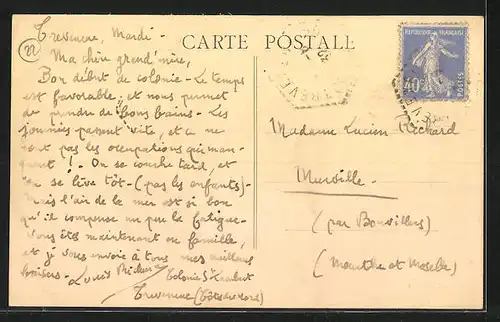 Treveneuc, Mardi -
Ma chère grand'mère,
Bon début de colonie - Le temps
est favorable; et nous permet
de prendre de "bons bains - Les
journées passent vite, et ce ne
sont pas les occupations qui man-
quent ! - On se couche tard, et
on se lève tôt - (pas les enfants) -
Mais l'air de la mer est si bon
qu'il compense un peu la fatigue -
Vous êtes maintenant en famille,
et je vous envoie à tous mes meilleurs
baisers - Louis
Colonie St
Treveneuc (Côtes du Nord)
CARTE POSTALE
REPUBLIQUE FRANÇAISE
40c
POSTES
TREVE
Madame Lucien Richard
Murville -
(par Bonvillers
(Meurthe et Moselle)